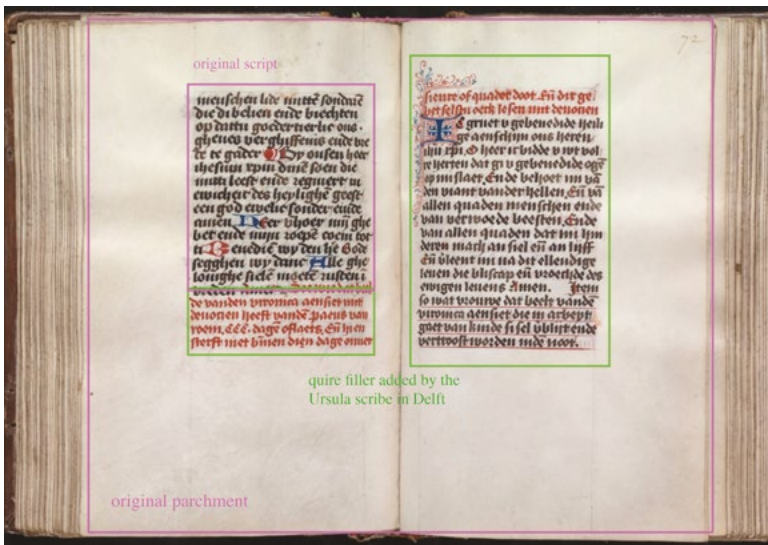 original script
menschen lide mitte sondaer
die di belien ende biechten
op dattu goedertierlic ons
gheves verghiffenis ende we
te gader Oy onsen heer
ihesum xpm dinen soen die
mitti leeft ende regniert in
ewicheit des heylighe geest
een god ewelic sonder eynde
amen Heer verhoer mijn ghe
bet ende mijn roepe coem tot
ti Benedien wy den he Gode
segghen wy danc Alle ghe
lovighe sielē moetē rusten i
de vanden vironica aensiet mit
devocien heeft vandē paeus van
room .CCC. dagē oflaets. Eñ hi en
sterft niet binnen dien dage onver
72
siente of quadet doot. Eñ dit ge
bet selstu oeck lesen mit devocien
IC gruet v gebenedide heili
ge aenschijn ons heren
ihu xpi. O heer ic bidde v wt vol
re herten dat gi v gebenedide ogē
op mi slaet. Ende behoet mi vā
den viant vander hellen. Eñ vā
allen quaden menschen ende
van verwoede beesten. Ende
van allen quaden dat mi hin
deren mach an siel eñ an lijff
Eñ vleent mi na dit ellendige
leven die bliscap eñ vroechde des
ewigen levens Amen. Item
so wat vrouwe dat beelt vandē
vironica aensiet die in arbeyt
gaet van kinde si sel vblijt ende
vertroost worden inde noot.
quire filler added by the
Ursula scribe in Delft
original parchment